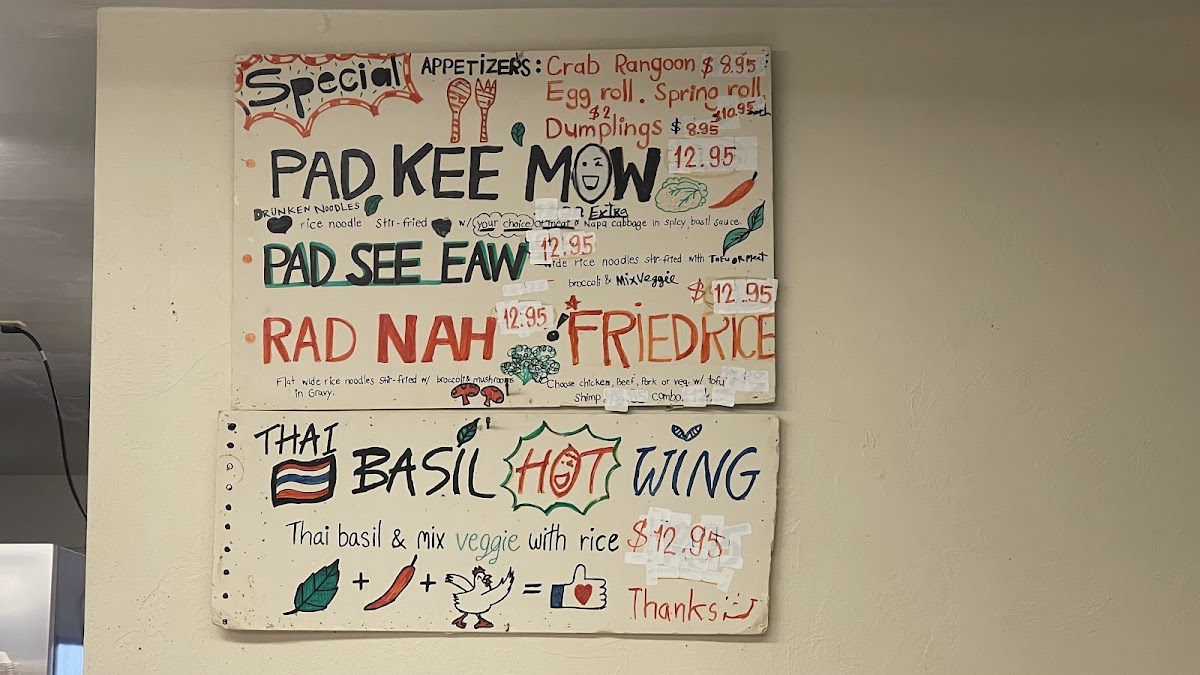 Special
APPETIZERS: Crab Rangoon $8.95
Egg roll. Spring roll
$2 $10.95 each
Dumplings $8.95
PAD KEE MOW 12.95
DRUNKEN NOODLES
Extra
rice noodle stir-fried w/ your choice of meat & Napa cabbage in spicy basil sauce.
PAD SEE EAW 12.95
wide rice noodles stir-fried with TOFU OR MEAT
broccoli & Mix Veggie
RAD NAH 12.95
! FRIED RICE $12.95
Flat wide rice noodles stir-fried w/ broccoli & mushrooms
in Gravy.
Choose chicken, Beef, Pork or veg. w/ tofu
Shimp combo.
THAI
BASIL HOT WING
Thai basil & mix veggie with rice $12.95
+ + =
Thanks